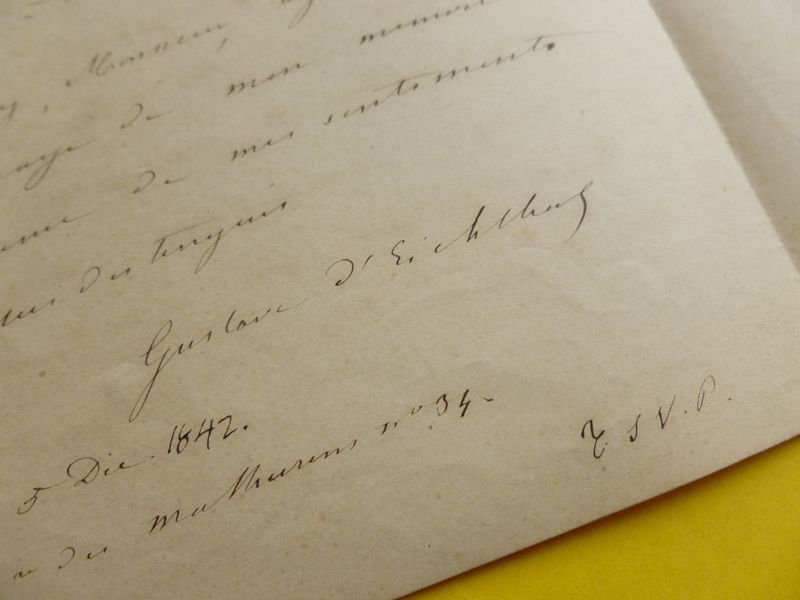 , Monsieur,
de mon
de mes sentiments
les plus distingués
Gustave d'Eichthal
5 Dec. 1842.
r des mathurins no 34.
T. S V. P.